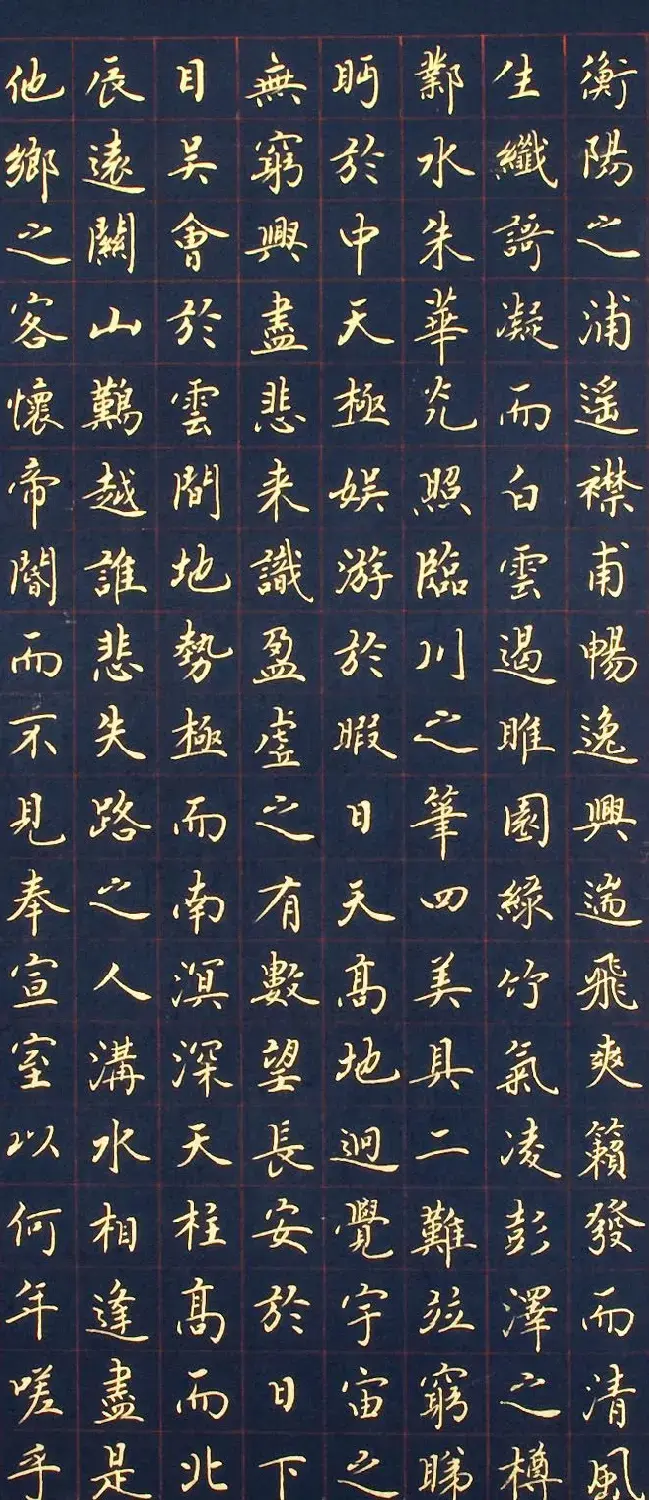 衡陽之浦遥襟甫暢逸興遄飛爽籟發而清風
生纖謌凝而白雲遏睢園緑竹氣凌彭澤之樽
鄴水朱華光照臨川之筆四美具二難並窮睇
眄於中天極娱游於暇日天高地迥覺宇宙之
無窮興盡悲来識盈虛之有數望長安於日下
目吴會於雲間地勢極而南溟深天柱高而北
辰遠關山難越誰悲失路之人溝水相逢盡是
他鄉之客懷帝閽而不見奉宣室以何年嗟乎